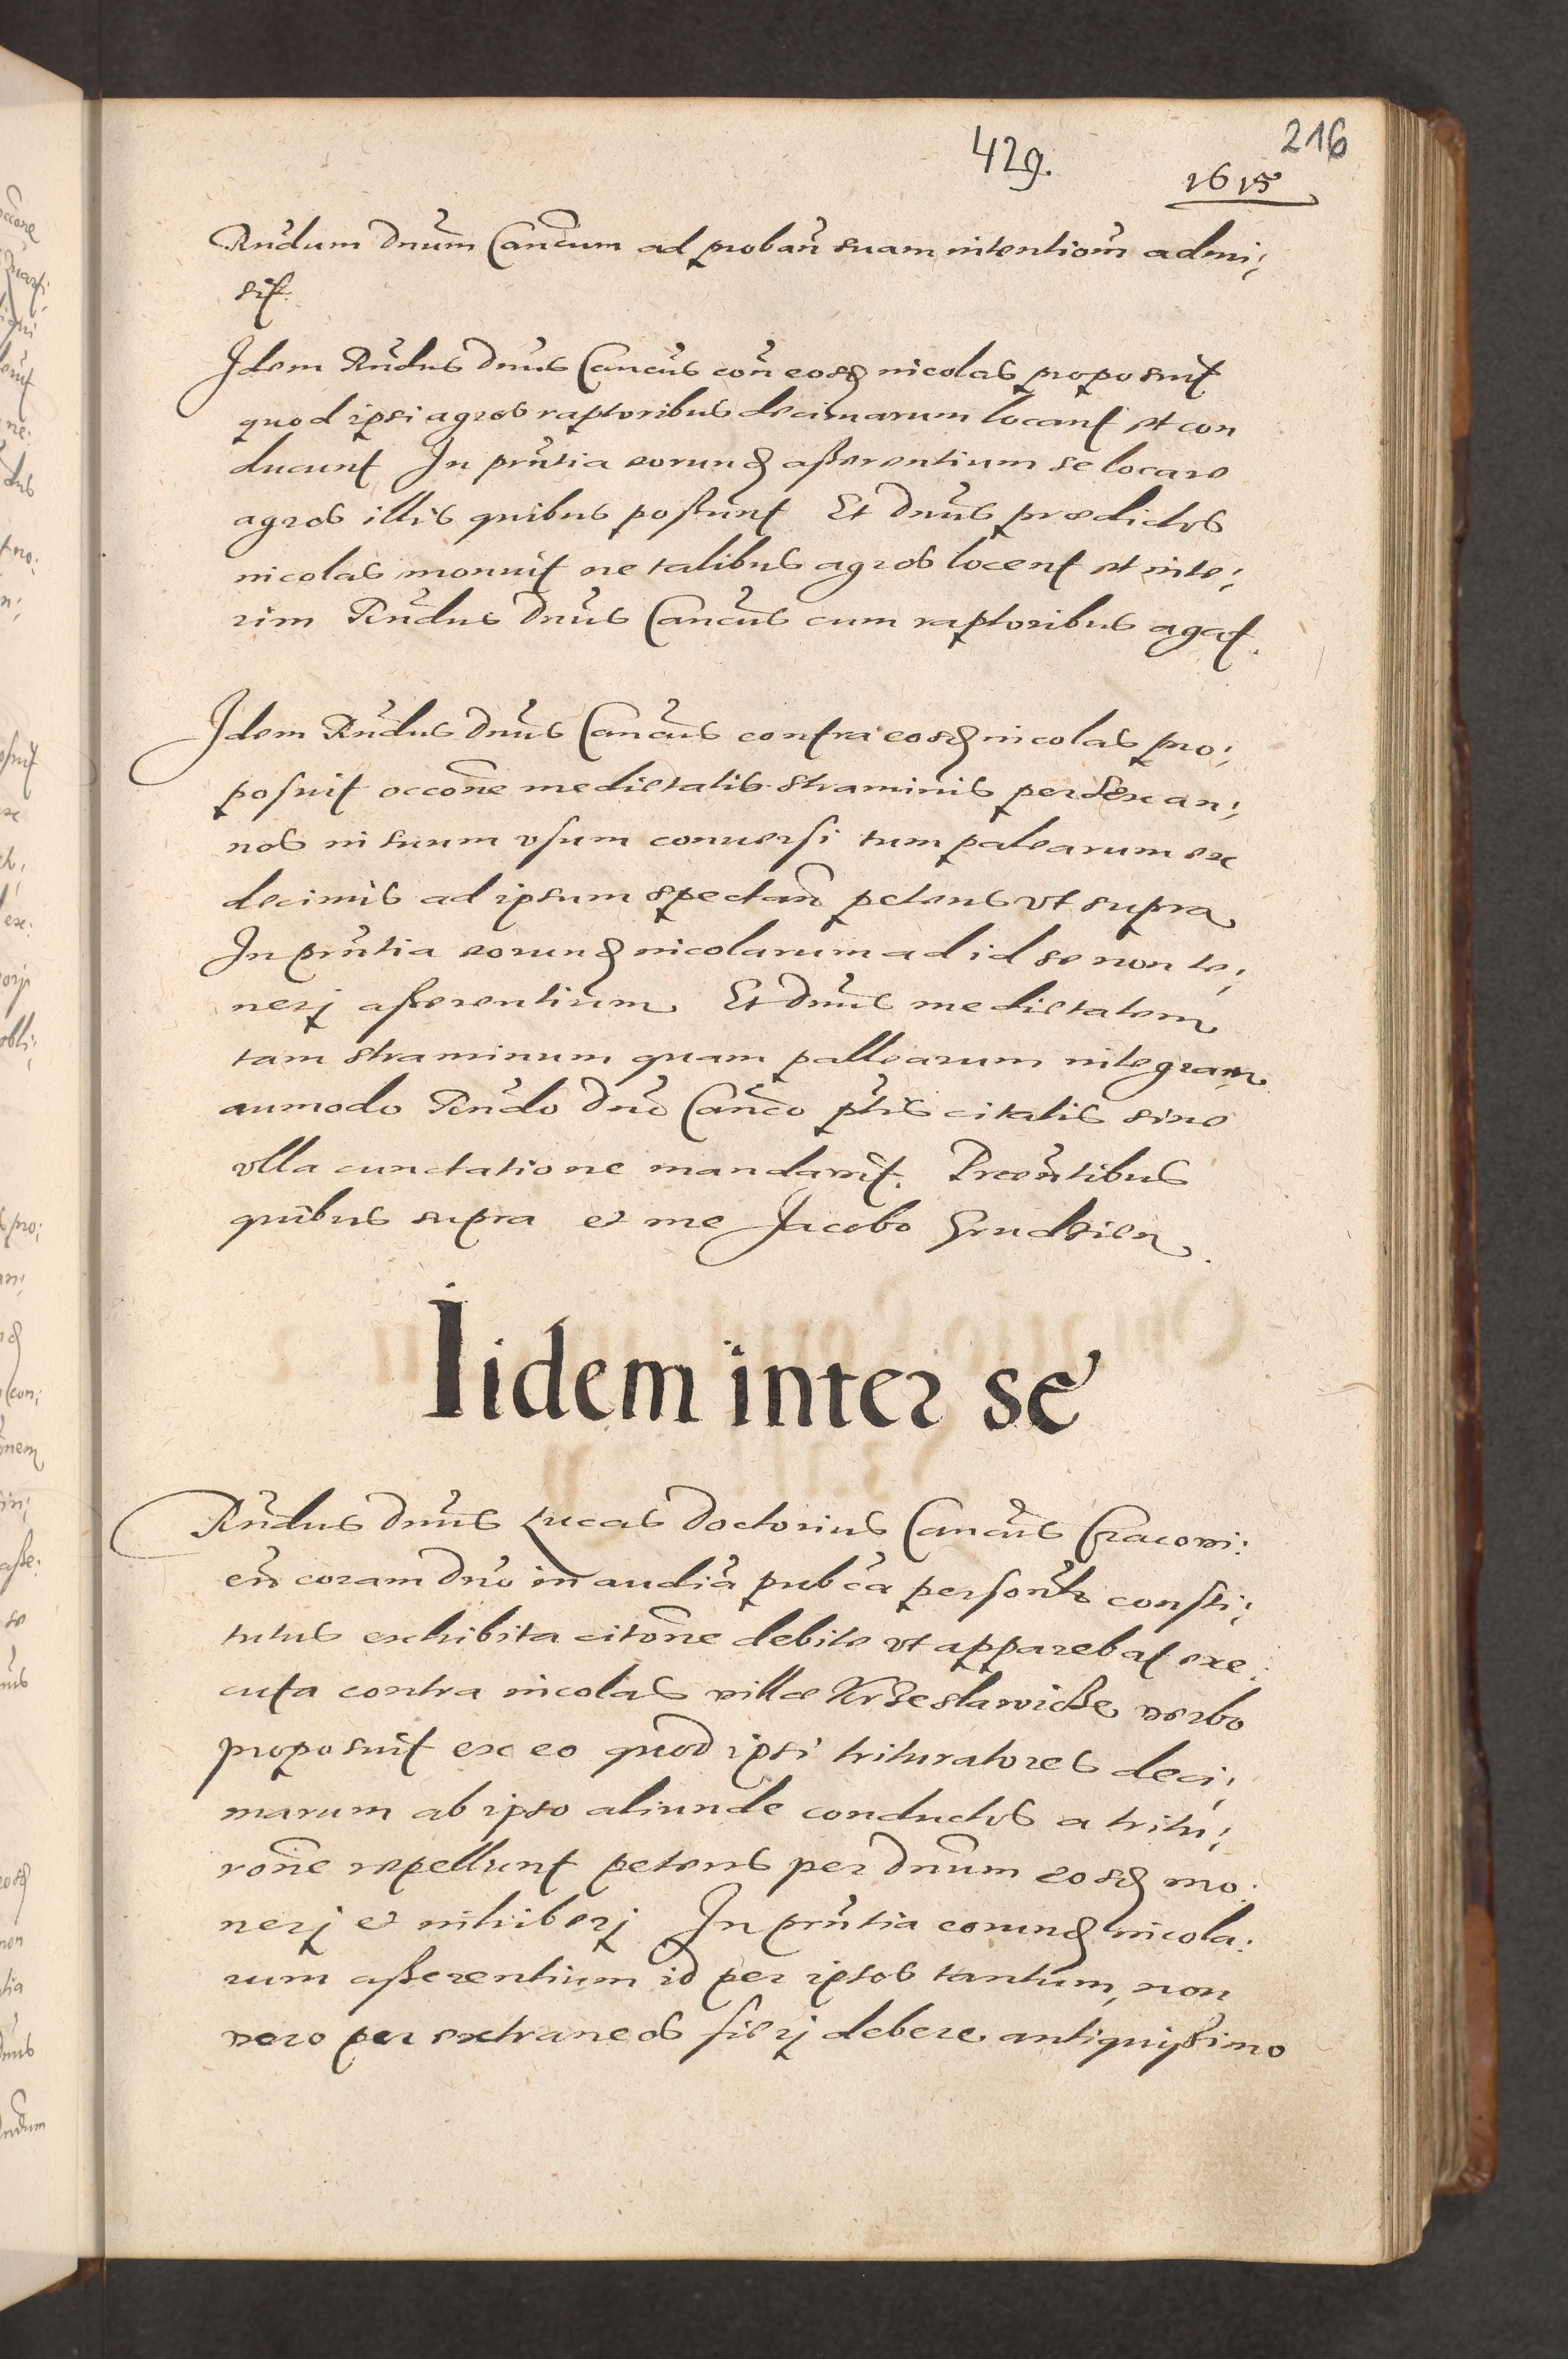 429.
216
1615
Rndum Dnum Cancum ad proban suam intentiom admi;
sit.
Idem Rndus Dnus Cancus con eosd incolas proposuit
quod ipsi agros raptoribus decimarum locant et con
ducunt In prntia eorund asserentium se locare
agros illis quibus possunt Et Dnus prædictos
incolas monuit ne talibus agros locent et inte;
rim Rndus Dnus Cancus cum raptoribus agat.
Idem Rndus Dnus Cancus contra eosd incolas pro;
posuit occone medietatis straminis per sex an;
nos in suum vsum conuersi tum palearum ex
decimis ad ipsum spectan petens vt supra
In prntia eorund incolarum ad id se non te;
nerj asserentium Et Dnus medietatem
tam straminum quam pallearum integram
amodo Rndo Dno Canco ptis citatis sine
vlla cunctatione mandavit. Præntibus
quibus supra et me Jacobo Grudzien.
Iidem inter se
Rndus Dnus Lucas Doctorius Cancus Cracovi:
en coram Dno in audia pubca personlr consti;
tutus exhibita citone debite vt apparebat exe;
cuta contra incolas villæ Krzeslawicze verbo
proposuit ex eo quod ipsi trituratores deci;
marum ab ipso aliunde conductos a tritu;
rone repellunt petens per Dnum eosd mo:
nerj et inhiberj In prntia eorund incola:
rum asserentium id per ipsos tantum, non
vero per extraneos fierj debere antiquissimo